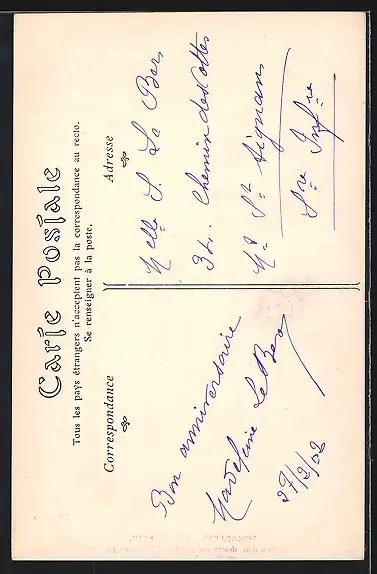 Carte Postale
Tous les pays étrangers n'acceptent pas la correspondance au recto.
Se renseigner à la poste.
Correspondance
Adresse
Bon anniversaire
Madeleine Le Ber
27/2/02
Melle S. Le Ber
32. Chemin des Cottes
Mt St Aignan
Sne Infre